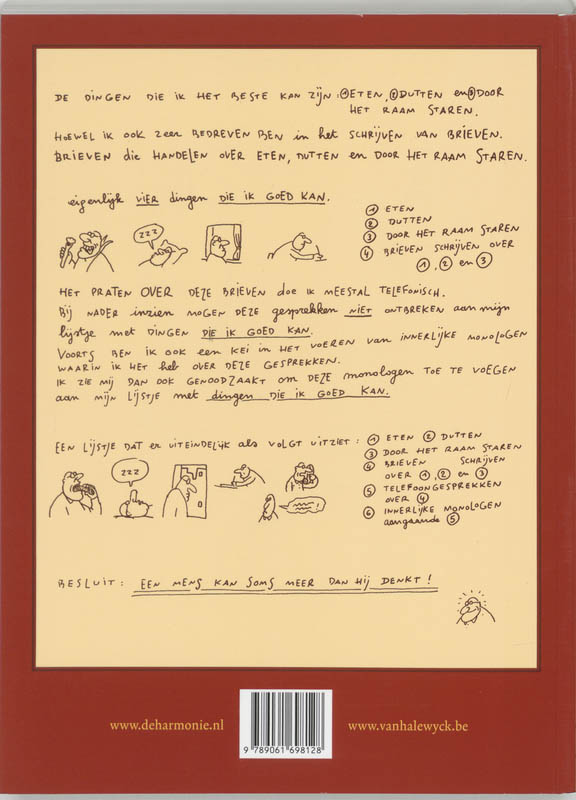 DE DINGEN DIE IK HET BESTE KAN ZIJN: ① ETEN, ② DUTTEN en ③ DOOR
HET RAAM STAREN.
HOEWEL IK OOK ZEER BEDREVEN BEN in het SCHRIJVEN VAN BRIEVEN.
BRIEVEN die HANDELEN OVER ETEN, DUTTEN en DOOR HET RAAM STAREN.
eigenlijk VIER dingen DIE IK GOED KAN.
① ETEN
② DUTTEN
③ DOOR HET RAAM STAREN
④ BRIEVEN SCHRIJVEN OVER
①, ② en ③
ZZZ
HET PRATEN OVER DEZE BRIEVEN doe IK MEESTAL TELEFONISCH.
Bij NADER inzien MOGEN DEZE gesprekken NIET ONTBREKEN aan mijn
lijstje met DINGEN DIE IK GOED KAN.
VOORTS BEN IK OOK een KEI in HET VOEREN van INNERLIJKE MONOLOGEN
WAARIN IK HET heb OVER DEZE GESPREKKEN.
IK ZIE MIJ DAN OOK GENOODZAAKT om DEZE monologen TOE TE VOEGEN
aan MIJN LIJSTJE met dingen DIE IK GOED KAN.
EEN LIJSTJE DAT er UITEINDELIJK als VOLGT UITZIET:
① ETEN ② DUTTEN
③ DOOR HET RAAM STAREN
④ BRIEVEN SCHRIJVEN
OVER ①, ② en ③
⑤ TELEFOONGESPREKKEN
OVER ④
⑥ INNERLIJKE MONOLOGEN
aangaande ⑤
ZZZ
BESLUIT: EEN MENS KAN SOMS MEER DAN HIJ DENKT!
www.deharmonie.nl
www.vanhalewyck.be
9 789061 698128